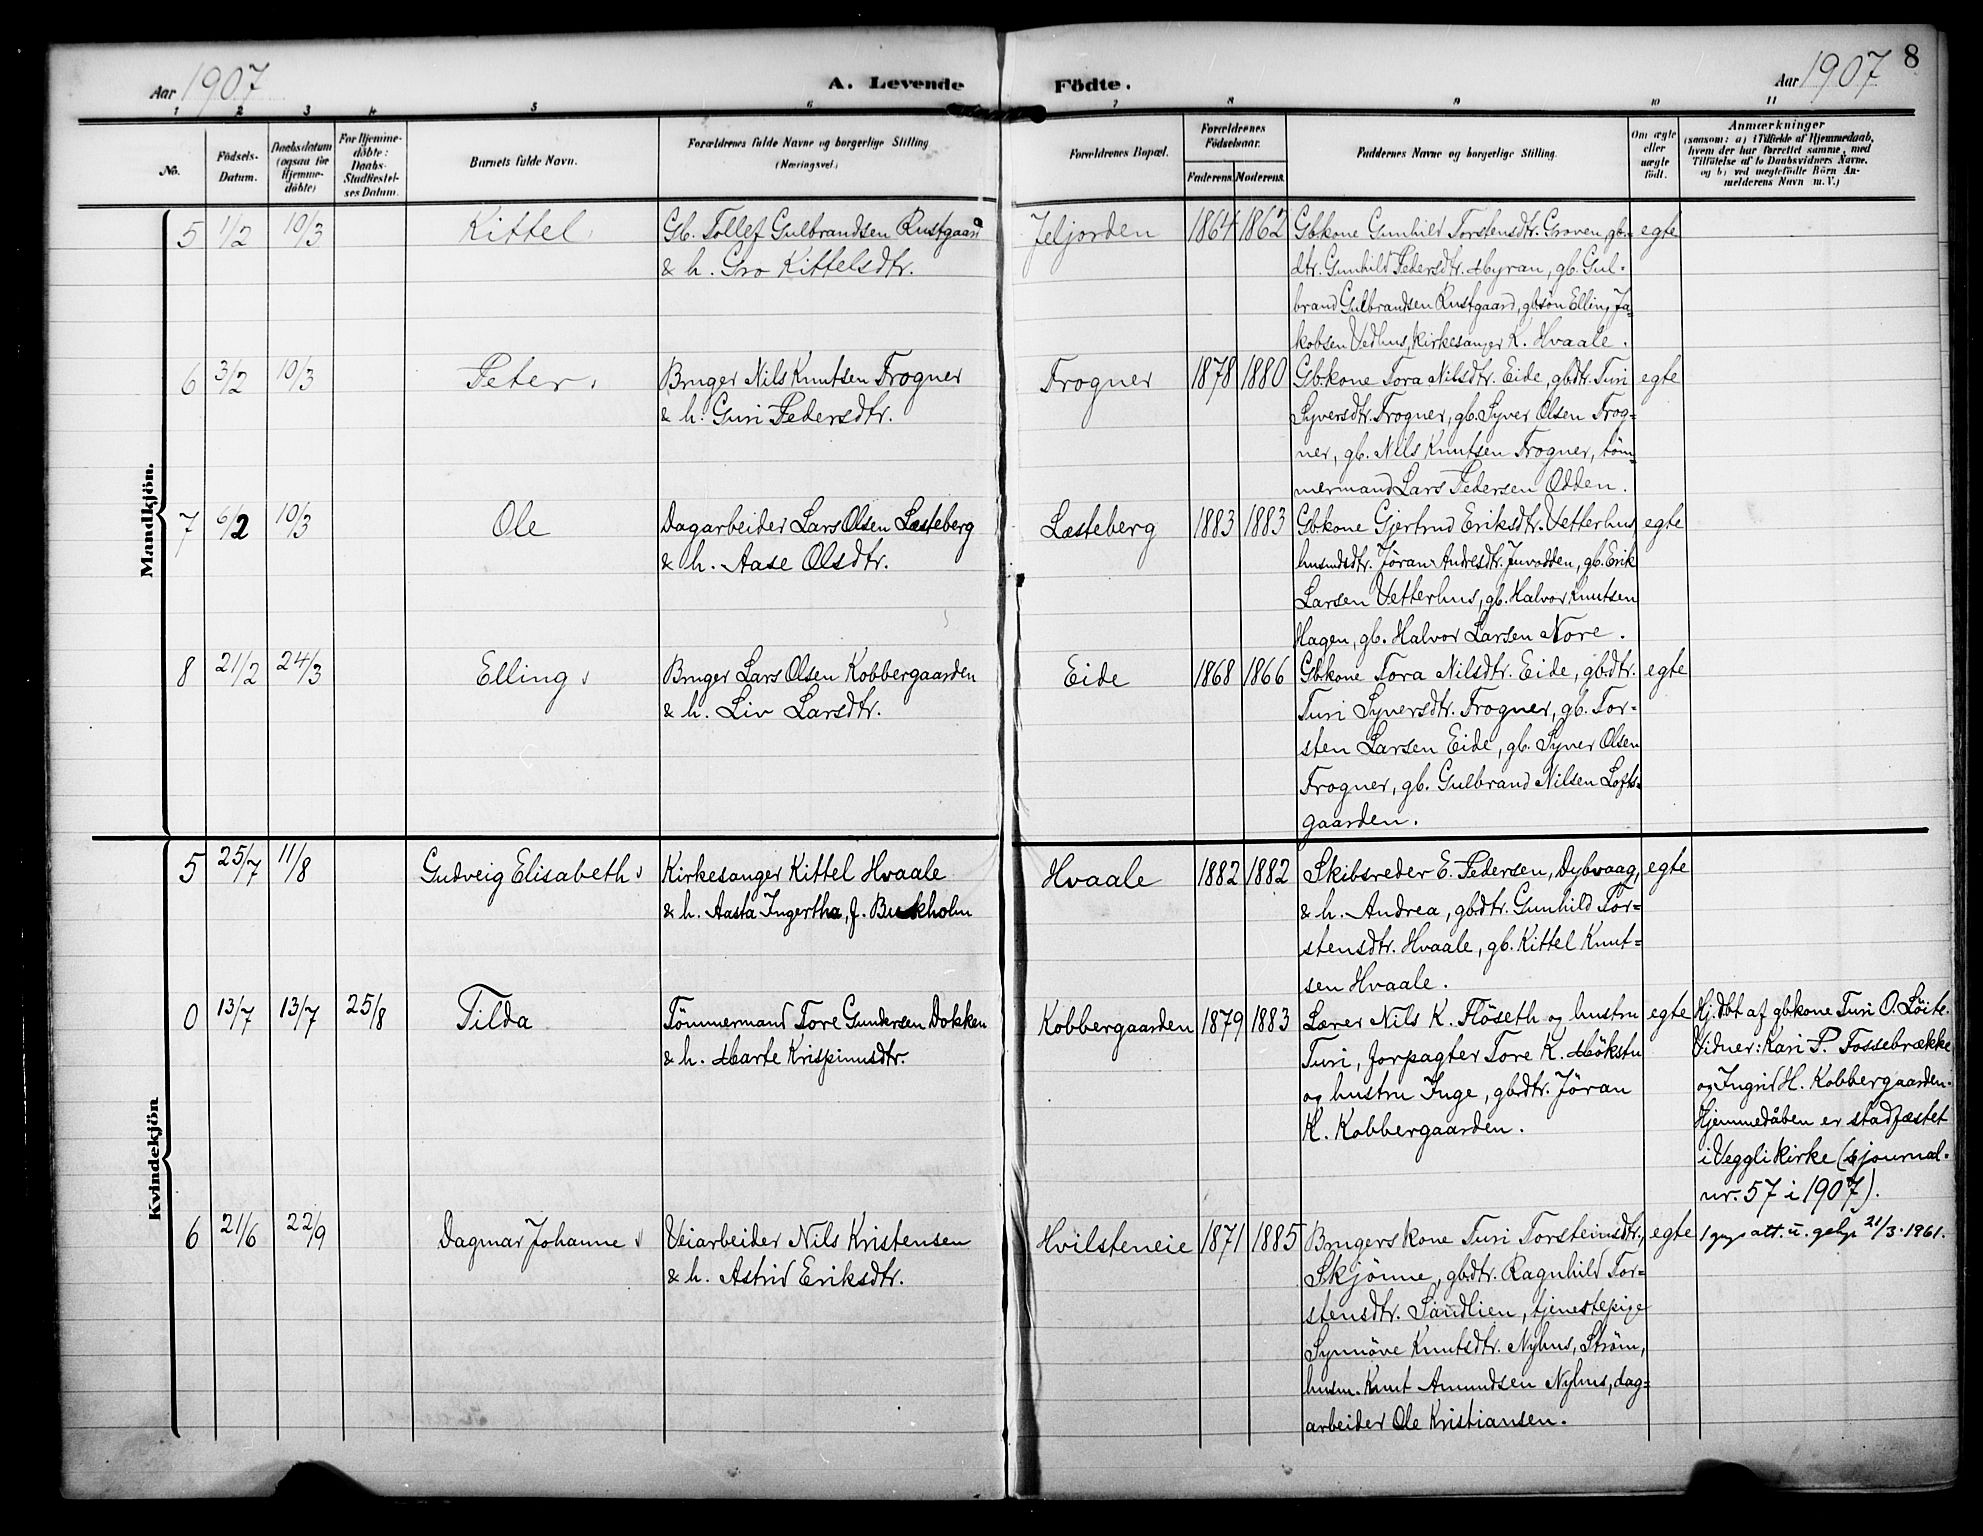 8
Aar 1907
A. Levende Födte.
Aar 1907
1 2 3 4 5 6 7 8 9 10 11
No.
Födsels-
Datum.
Daabsdatum
(ogsaa for
Hjemme-
döbte)
For Hjemme-
döbte:
Daabs-
Stadfæstel-
ses Datum.
Barnets fulde Navn.
Forældrenes fulde Navne og borgerlige Stilling
(Næringsvei.)
Forældrenes Bopæl.
Forældrenes
Födselsaar.
Faderens. Moderens.
Faddernes Navne og borgerlige Stilling.
Om ægte
eller
uægte
födt.
Anmærkninger
(saasom: a) i Tilfælde af Hjemmedaab,
hvem der har forrettet samme, med
Tilföielse af to Daabsvidners Navne.
og b) ved uægtefödte Börn An-
melderens Navn m. V.)
Mandkjön.
5 1/2 10/3 Kittel Gb. Tollef Gulbrandsen Rustgaard
& h. Gro Kittelsdtr.
Jeljorden 1864 1862 Gbkone Gunhild Torstensdtr. Groven, gb.- egte
dtr. Gunhild Pedersdtr. Myran, gb. Gul-
brand Gulbrandsen Rustgaard, gbsön Elling Ja-
kobsen Vedhus, Kirkesanger K. Hvaale.
6 3/2 10/3 Peter Bruger Nils Knutsen Frogner
& h. Guri Pedersdtr.
Frogner 1878 1880 Gbkone Tora Nilsdtr. Eide, gbdtr. Turi egte
Syversdtr. Frogner, gb. Syver Olsen Frog=
ner, gb. Nils Knutsen Frogner, töm=
mermand Lars Pedersen Odden.
7 6/2 10/3 Ole Dagarbeider Lars Olsen Læsteberg
& h. Aase Olsdtr.
Læsteberg 1883 1883 Gbkone Gjertrud Eriksdtr. Vetterhus, egte
husmdsdtr. Jöran Andresdtr. Juvodden, gb. Erik
Larsen Vetterhus, gb. Halvor Knutsen
Hagen, gb. Halvor Larsen Nore.
8 21/2 24/3 Elling Bruger Lars Olsen Kobbergaarden
& h. Liv Larsdtr.
Eide 1868 1866 Gbkone Tora Nilsdtr. Eide, gbdtr. egte
Turi Syversdtr. Frogner, gb. Tor-
sten Larsen Eide, gb. Syver Olsen
Frogner, gb. Gulbrand Nilsen Lofts-
gaarden.
Kvindekjön
5 25/7 11/8 Gudveig Elisabeth Kirkesanger Kittel Hvaale
& h. Aasta Ingertha, f. Buckholm
Hvaale 1882 1882 Skibsreder E. Pedersen, Dybvaag, egte
& h. Andrea, gbdtr. Gunhild Tor=
stensdtr. Hvaale, gb. Kittel Knut=
sen Hvaale.
0 13/7 13/7 25/8 Tilda Tömmermand Tore Gundersen Dokken
& h. Marte Krispinusdtr.
Kobbergaarden 1879 1883 Lærer Nils K. Flöseth og hustru egte
Turi, forpagter Tore K. Mökstu
og hustru Inge, gbdtr. Jöran
K. Kobbergaarden.
Hj.dbt af gbkone Turi O. Löite.
Vidner: Kari P. Fossebrække
og Ingrid H. Kobbergaarden.
Hjemmedåben er stadfæstet
i Veggli kirke (s journal.
nr. 57 i 1907).
6 21/6 22/9 Dagmar Johanne Veiarbeider Nils Kristensen
& h. Astrid Eriksdtr.
Hvilsteneie 1871 1885 Brugerskone Turi Torsteinsdtr., egte
Skjönne, gbdtr. Ragnhild Tor=
stensdtr. Sandlien, tjenestepige
Synnöve Knutsdtr. Nyhus, Ström,
husm. Knut Amundsen Nyhus, dag=
arbeider Ole Kristiansen.
1 att. u. 21/3.1961.